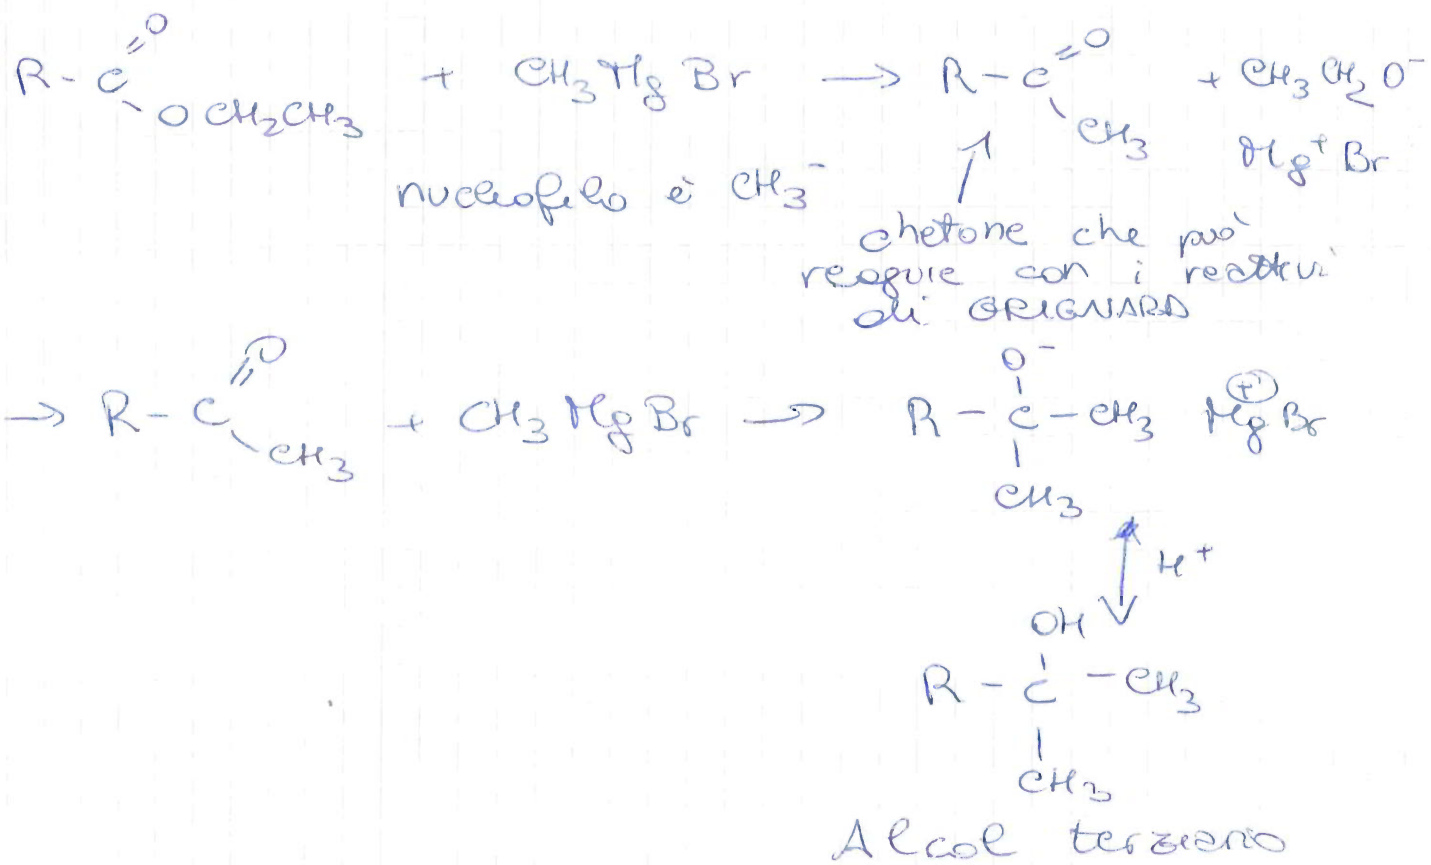 R - C =O O CH2CH3 + CH3 Mg Br → R - C =O CH3 + CH3 CH2 O⁻
Mg⁺ Br
nucleofilo è CH3⁻
chetone che può
reagire con i reattivi
di GRIGNARD
→ R - C =O CH3 + CH3 Mg Br → R - C - CH3 Mg⊕ Br
O⁻
CH3
H⁺
OH
R - C - CH3
CH3
Alcol terziario